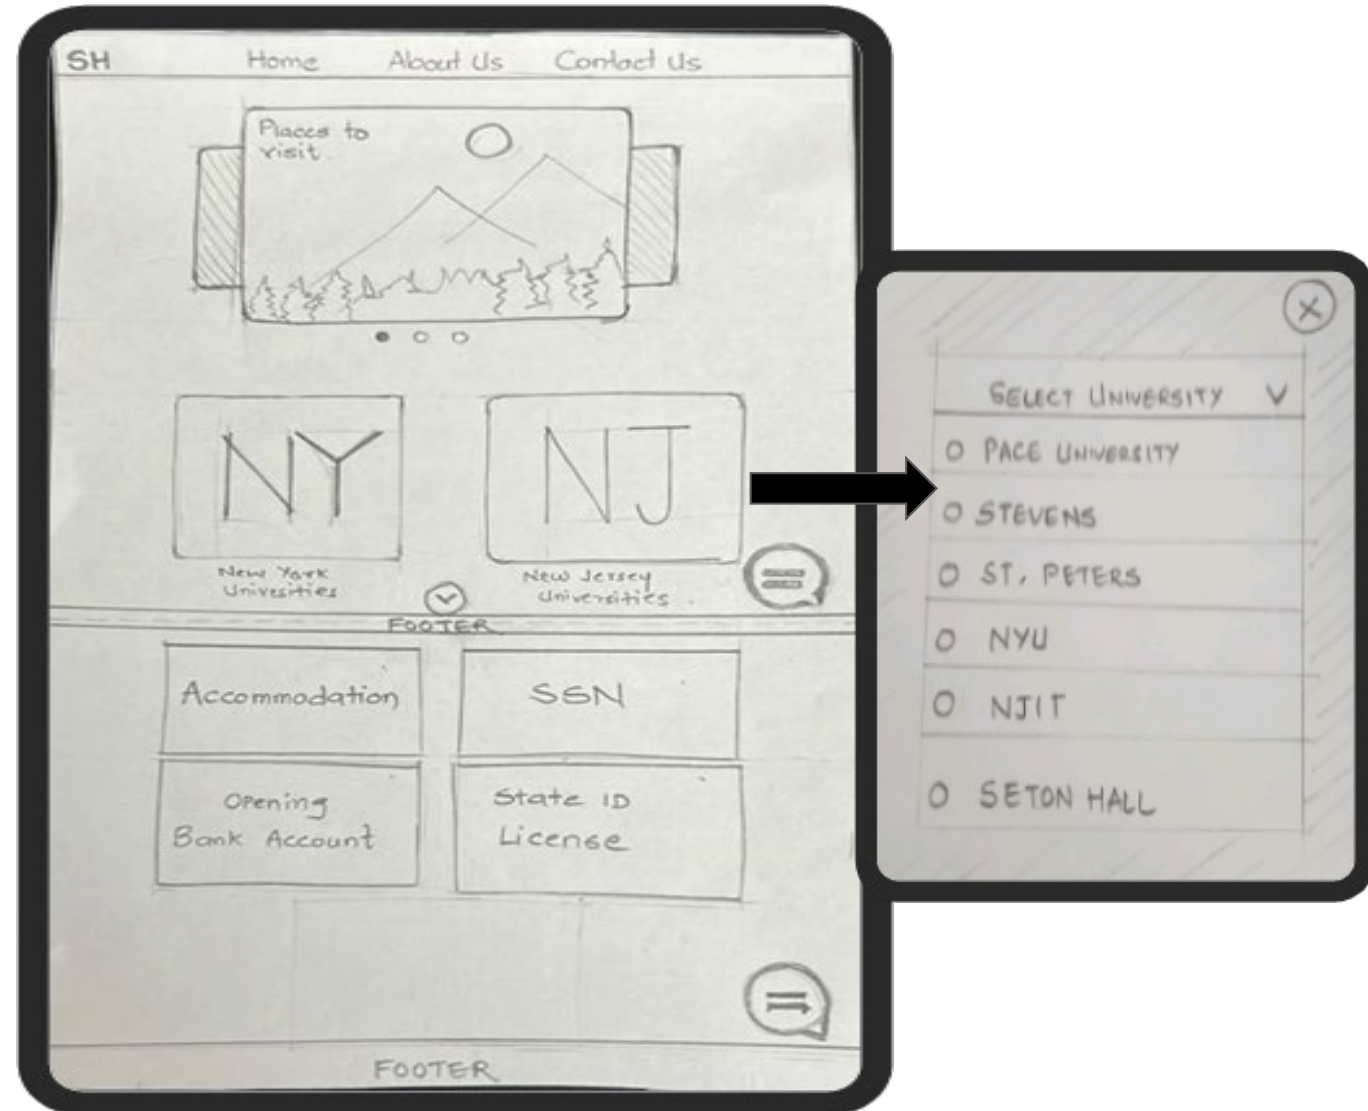 SH Home About Us Contact Us
Places to
visit.
NY
NJ
New York
Univesities
New Jersey
Universities.
FOOTER
Accommodation
SSN
Opening
Bank Account
State ID
License
FOOTER
SELECT UNIVERSITY
PACE UNIVERSITY
STEVENS
ST. PETERS
NYU
NJIT
SETON HALL